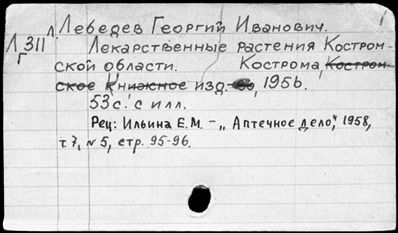 Лебедев Георгий Иванович.
Л 311 Лекарственные растения Костром
Г
ской области. Кострома, Костром
ское Книжное изд-во, 1956.
53 с. с илл.
Рец: Ильина Е.М. – „Аптечное дело", 1958,
т.7, N 5, стр. 95-96.